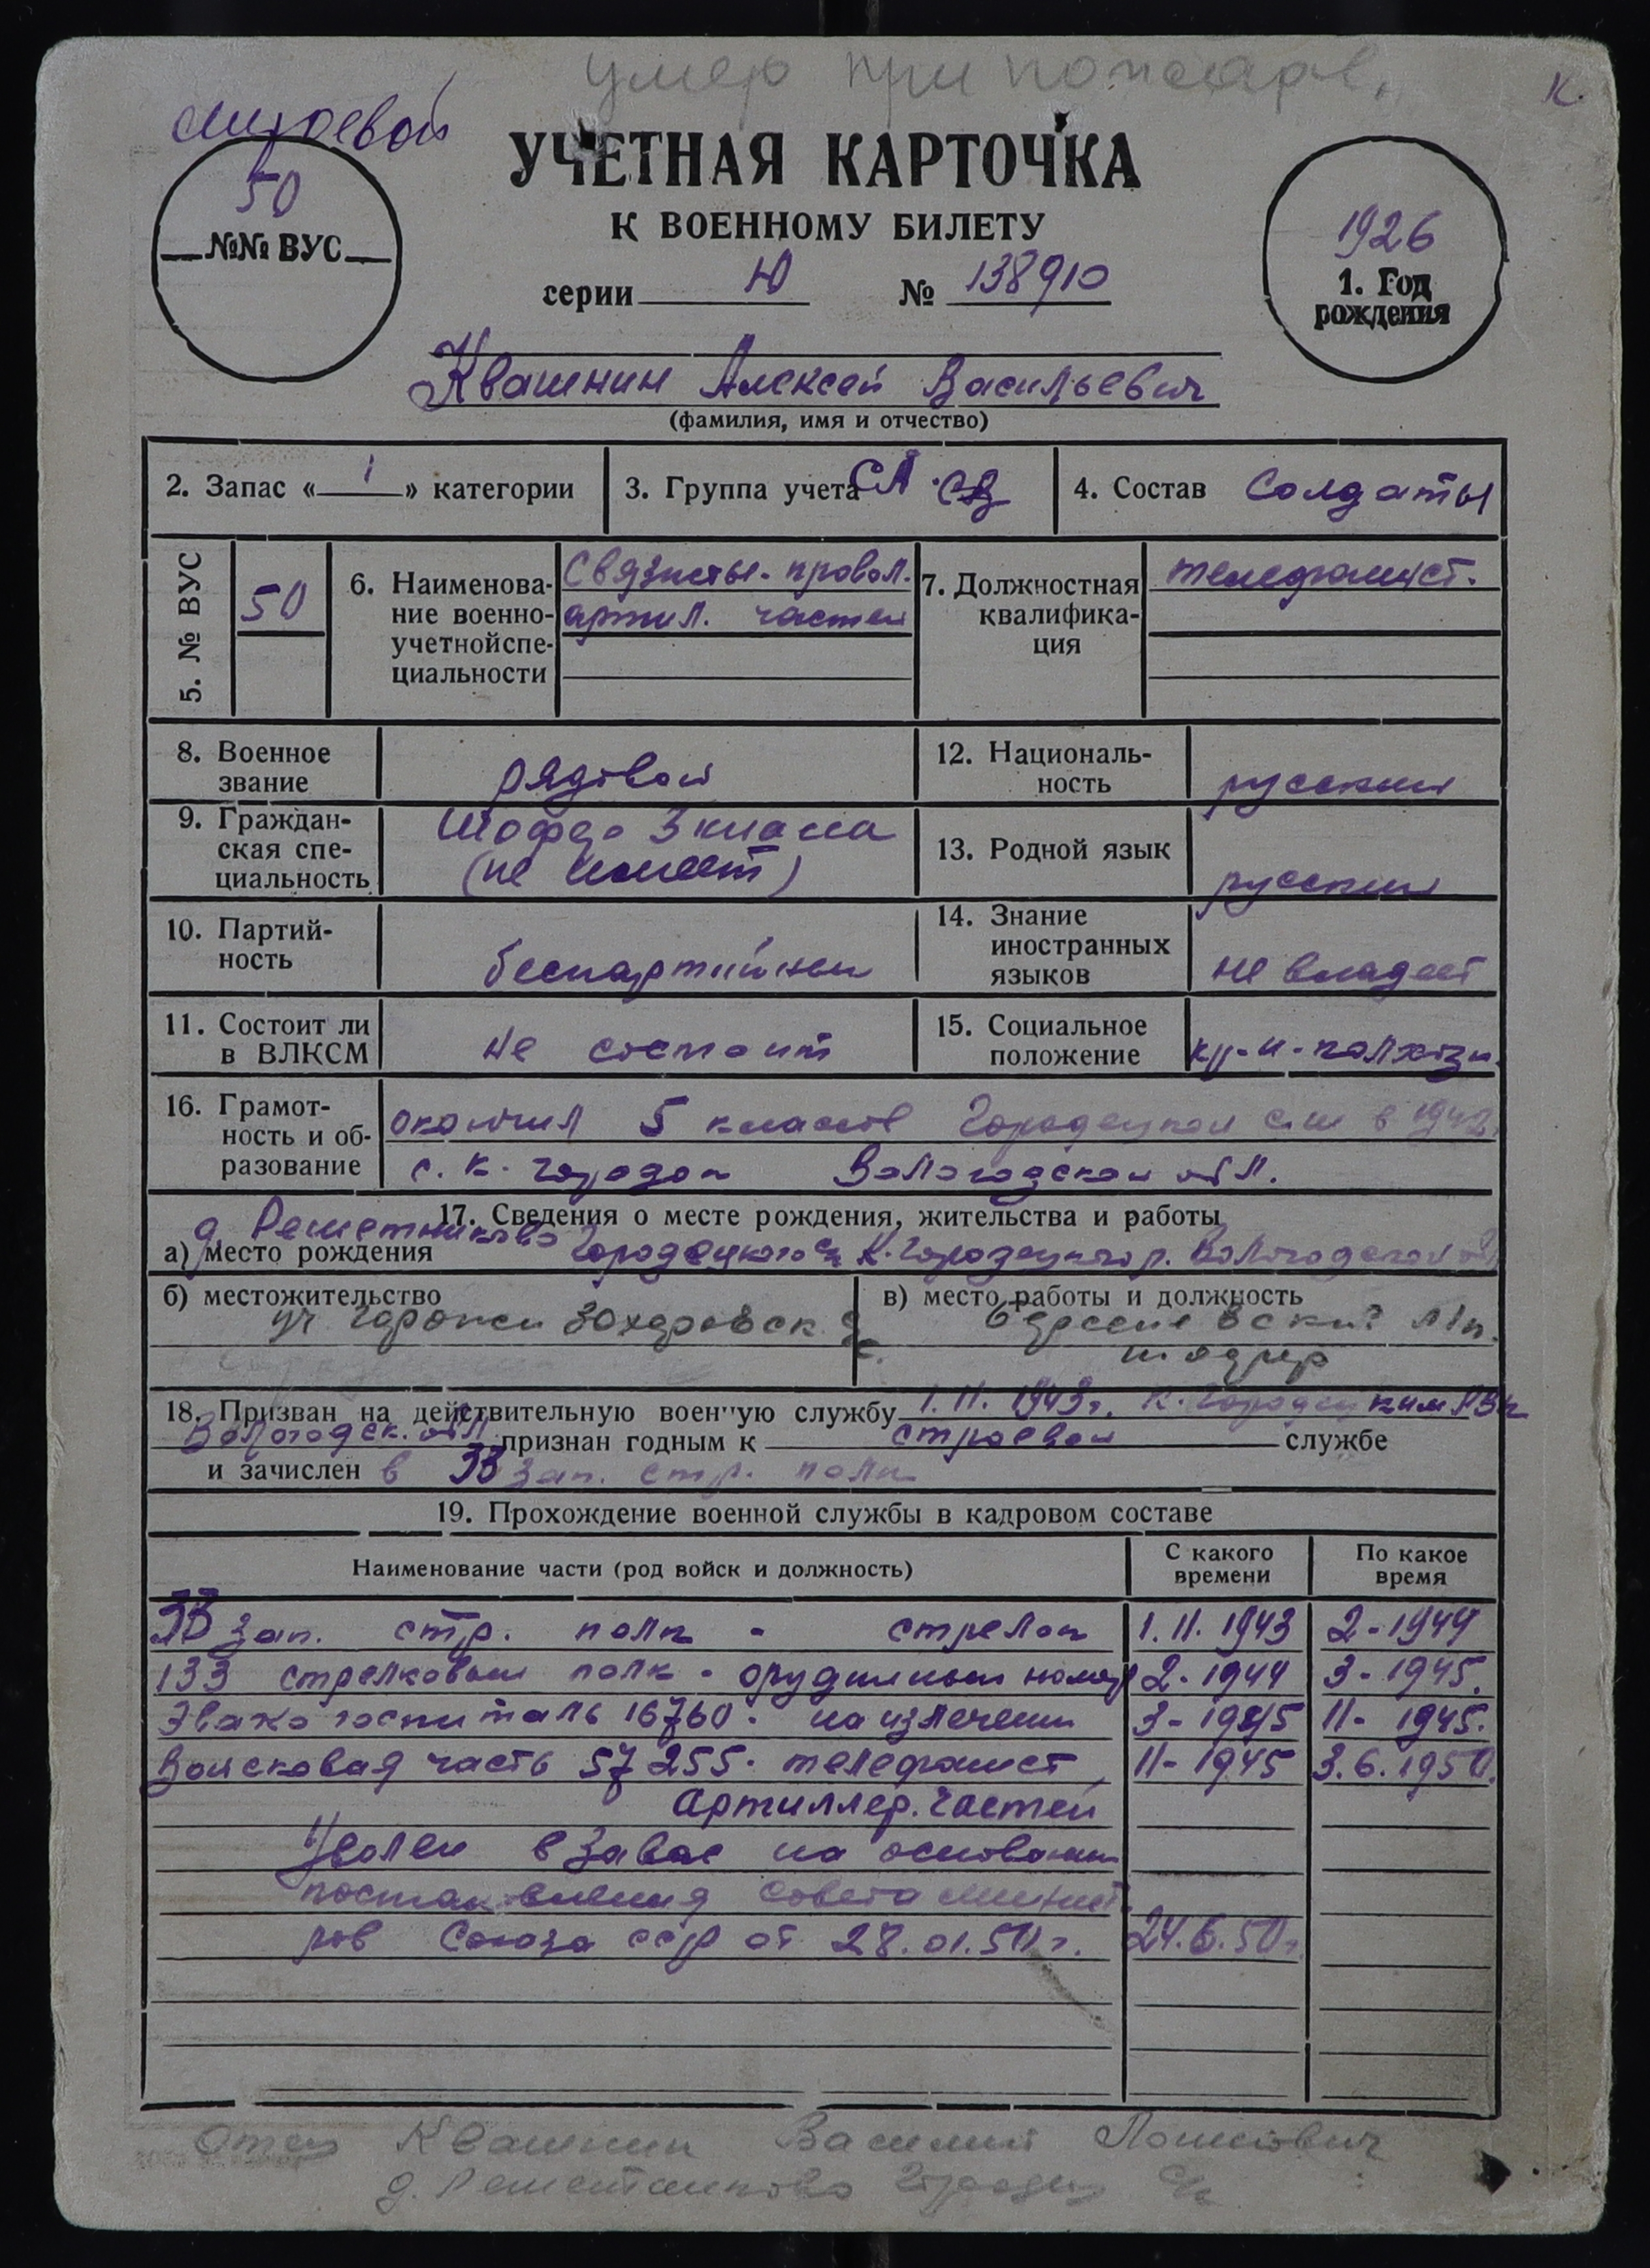 умер при пожаре.
К.
строевой
50
№№ ВУС
УЧЕТНАЯ КАРТОЧКА
К ВОЕННОМУ БИЛЕТУ
серии Ю № 138910
1926
1. Год
рождения
Квашнин Алексей Васильевич
(фамилия, имя и отчество)
2. Запас « 1 » категории
3. Группа учета СА
4. Состав солдаты
5. № ВУС
50
6. Наименова-
ние военно-
учетной спе-
циальности
Связисты- провол.
артил. частей
7. Должностная
квалифика-
ция
телефонист.
8. Военное
звание
рядовой
12. Националь-
ность
русский
9. Граждан-
ская спе-
циальность
Шофер 3 класса
(не имеет)
13. Родной язык
русский
10. Партий-
ность
беспартийный
14. Знание
иностранных
языков
не владеет
11. Состоит ли
в ВЛКСМ
не состоит
15. Социальное
положение
кр-н-колхозн.
16. Грамот-
ность и об-
разование
окончил 5 классов Городецкой с.ш в 1942
с. К. Городок Вологодской обл.
17. Сведения о месте рождения, жительства и работы
д. Решетниково
а) место рождения Городецкого с/с К. Городецкого р. Вологодской обл
б) местожительство
в) место работы и должность
18. Призван на действительную военную службу 1.11.1943г. К. Городецким РВК
Вологодск. обл признан годным к строевой службе
и зачислен в 33 зап. стр. полк
19. Прохождение военной службы в кадровом составе
Наименование части (род войск и должность)
С какого
времени
По какое
время
33 зап. стр. полк - стрелок 1.11.1943 2-1944
133 стрелковый полк - орудийный номер 2-1944 3-1945.
Эвакогоспиталь 16760. на излечении 3-1945 11-1945.
Войсковая часть 57255. телефонист 11-1945 3.6.1950.
Артиллер. частей
Уволен в запас на основании
постановления Совета Минист
ров Союза ССР от 28.01.50 г. 24.6.50г.
Отец Квашнин Василий
д. Решетниково Городец с/с